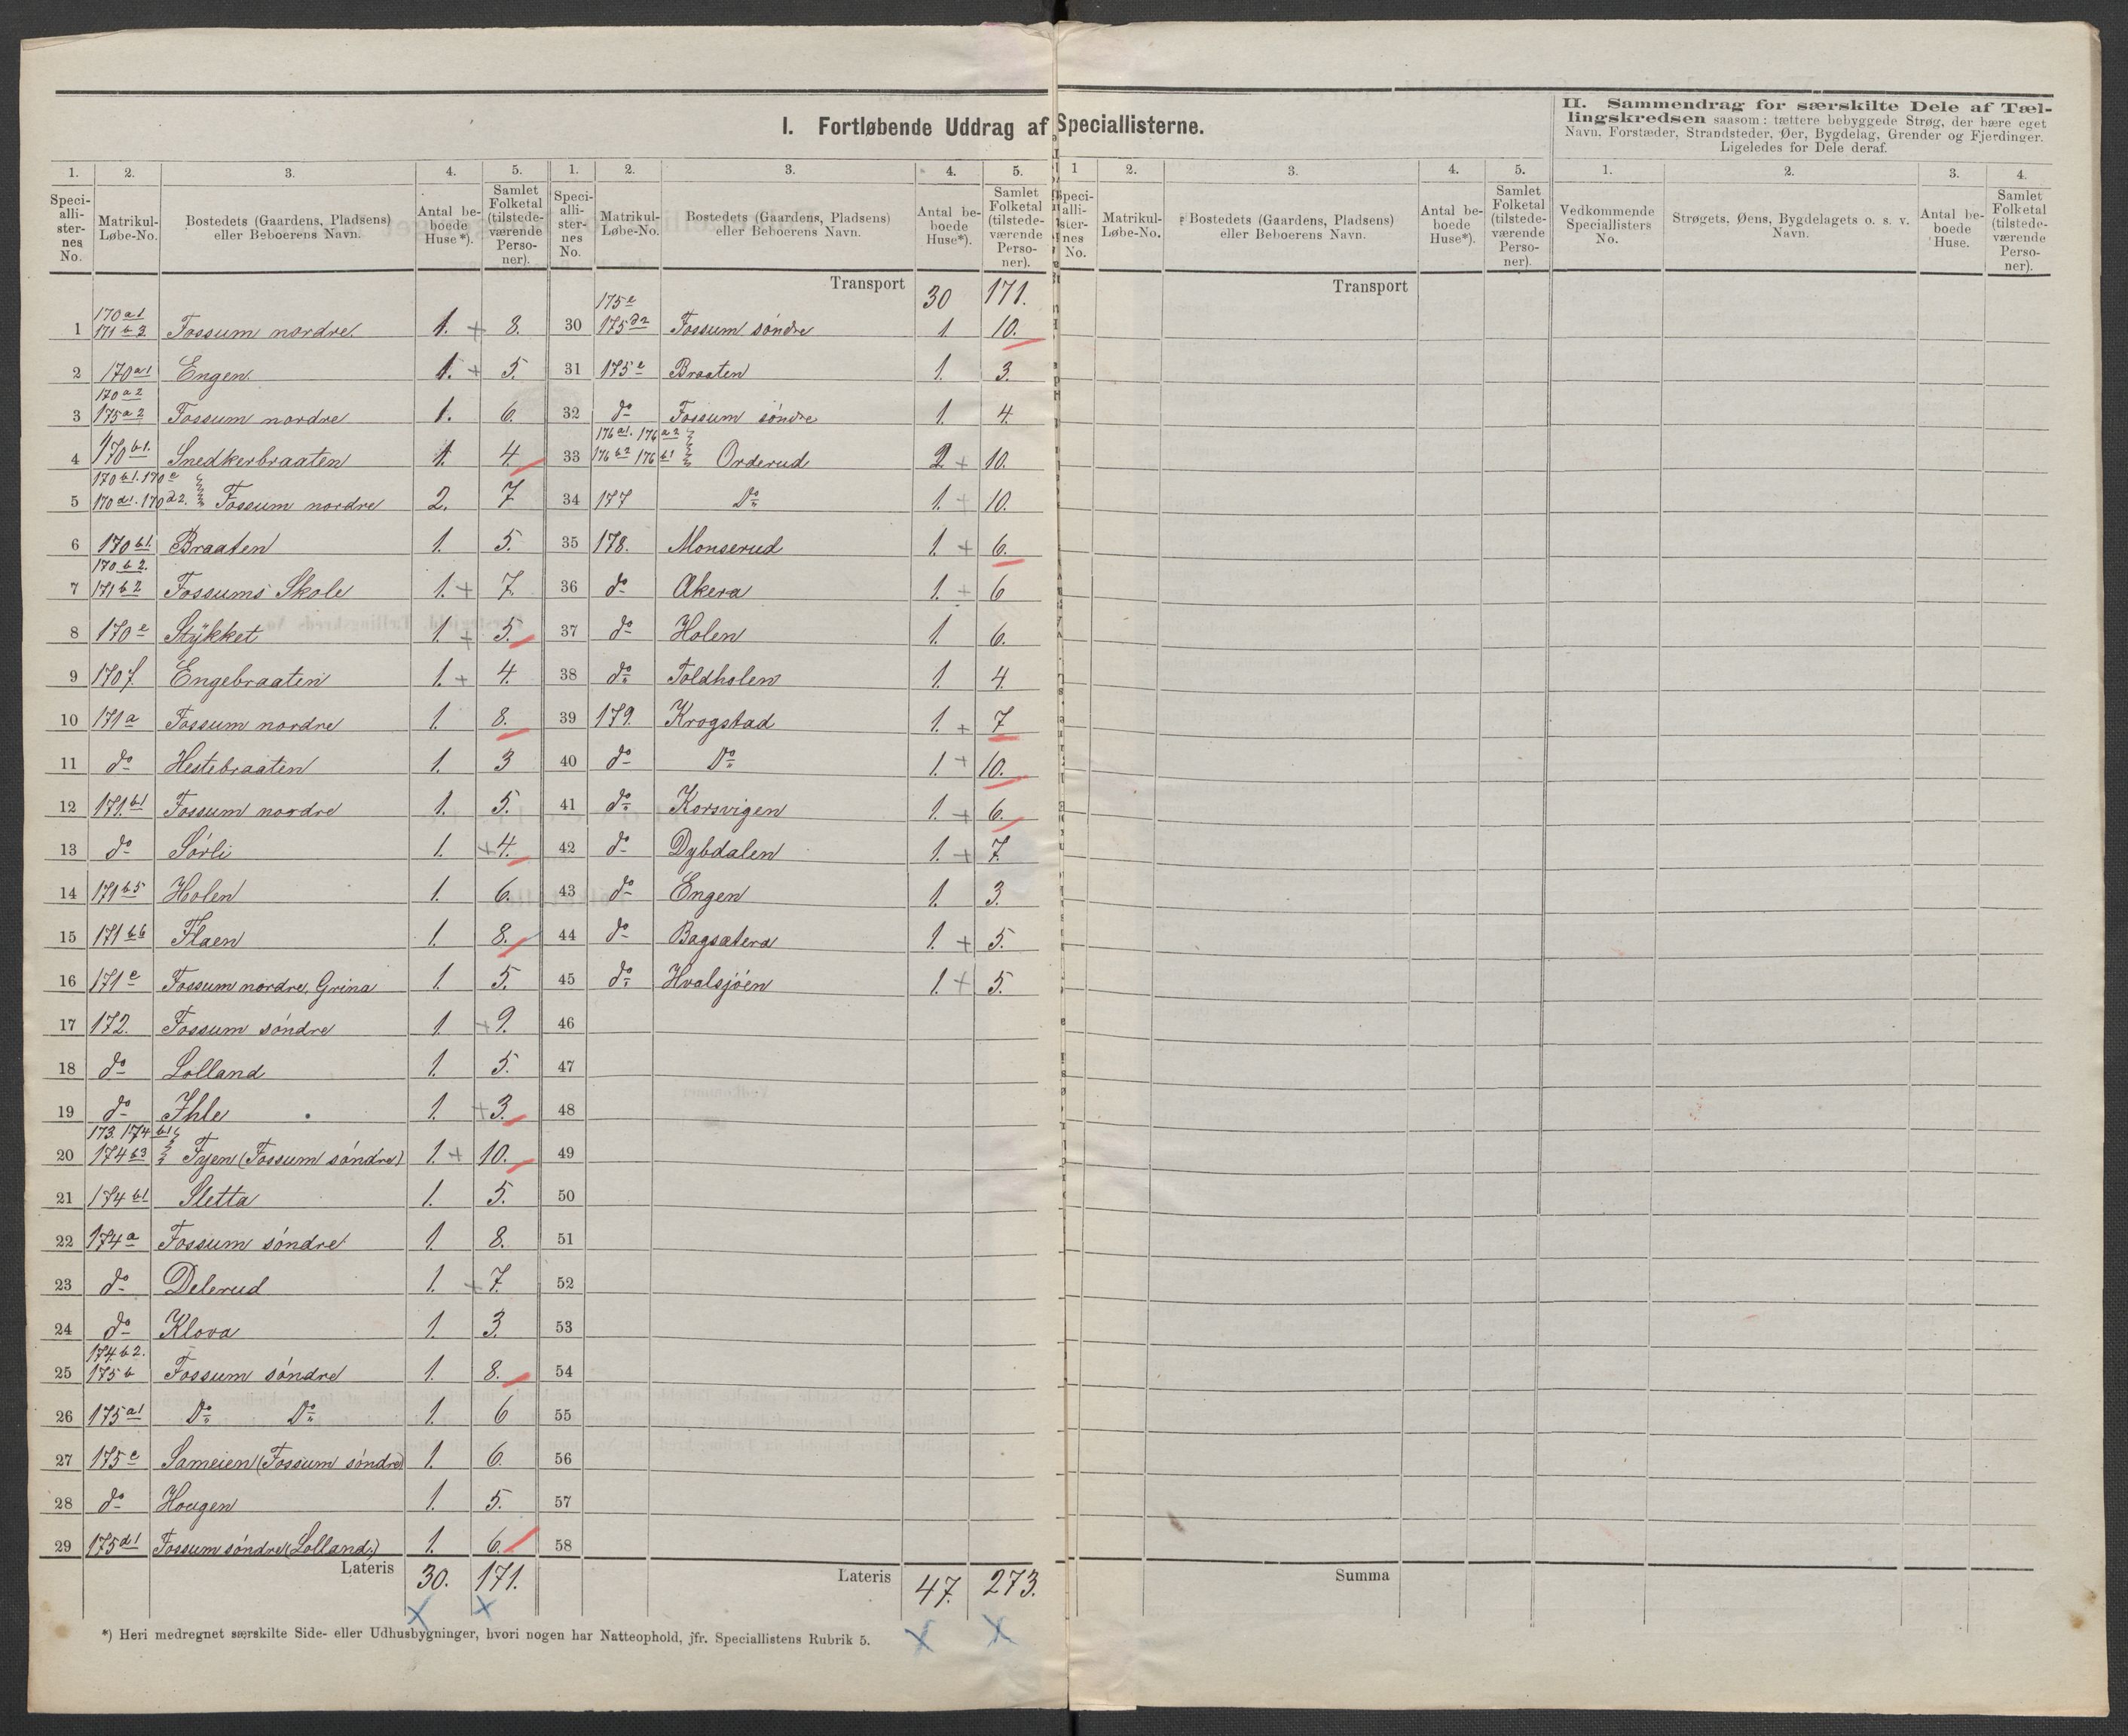 I. Fortløbende Uddrag af Speciallisterne.
II. Sammendrag for særskilte Dele af Tæl-
lingskredsen saasom: tættere bebyggede Strøg, der bære eget
Navn, Forstæder, Strandsteder, Øer, Bygdelag, Grender og Fjerdinger.
Ligeledes for Dele deraf.
1. 2. 3. 4. 5. 1. 2. 3. 4. 5. 1 2. 3. 4. 5. 1. 2. 3. 4.
Speci-alli-ster-nes No. Matrikul-Løbe-No. Bostedets (Gaardens, Pladsens) eller Beboerens Navn. Antal be-boede Huse*). Samlet Folketal (tilstede-værende Perso-ner).
Speci-alli-ster-nes No. Matrikul-Løbe-No. Bostedets (Gaardens, Pladsens) eller Beboerens Navn. Antal be-boede Huse*). Samlet Folketal (tilstede-værende Perso-ner).
Speci-alli-ster-nes No. Matrikul-Løbe-No. Bostedets (Gaardens, Pladsens) eller Beboerens Navn. Antal be-boede Huse*). Samlet Folketal (tilstede-værende Perso-ner).
Vedkommende Speciallisters No. Strøgets, Øens, Bygdelagets o. s. v. Navn. Antal be-boede Huse. Samlet Folketal (tilstede-værende Perso-ner).
1 170a1 171b3 Fossum nordre 1. + 8.
2 170a1 Engen 1. + 5.
3 170a2 175a2 Fossum nordre 1. 6.
4 170b1. Snedkerbraaten 1. 4.
5 170b1. 170c 170d1. 170d2. Fossum nordre 2. 7
6 170b1. Braaten 1. 5.
7 170b2. 171b2 Fossums Skole 1. + 7.
8 170e Stÿkket 1 + 5.
9 170f. Engebraaten 1. + 4.
10 171a Fossum nordre 1. 8.
11 do Hestebraaten 1. 3
12 171.b1 Fossum nordre 1. 5.
13 do Sørli 1. + 4.
14 171b5 Holen 1. 6.
15 171b6 Flaen 1. 8.
16 171c Fossum nordre, Grina 1. 5.
17 172. Fossum søndre 1 + 9.
18 do Lolland 1. 5.
19 do Ihle 1. + 3.
20 173. 174b1 174b3 Fyen (Fossum søndre) 1. + 10.
21 174b1 Sletta 1. 5.
22 174a Fossum søndre 1. 8.
23 do Delerud 1. + 7.
24 do Klova 1. 3.
25 174.b2. 175b Fossum søndre 1. 8.
26 175a1 Do Do 1. 6
27 175c Sameien (Fossum søndre) 1. 6.
28 do Hougen 1. 5.
29 175d1 Fossum søndre (Lolland.) 1. 6.
Lateris 30. 171.
Transport 30 171.
30 175e 175d2 Fossum søndre 1 10.
31 175e Braaten 1. 3.
32 do Fossum søndre 1. 4.
33 176a1. 176a2 176b2 176b1 Orderud 2 + 10.
34 177 Do 1. + 10.
35 178. Monserud 1. + 6.
36 do Akera 1. + 6
37 do Holen 1. 6.
38 do Toldholen 1. 4.
39 179. Krogstad 1. + 7
40 do Do 1. + 10.
41 do Korsvigen 1. + 6.
42 do Dybdalen 1. + 7.
43 do Engen 1. 3.
44 do Bagsætera 1. + 5.
45 do Hvalsjøen 1. + 5.
46
47
48
49
50
51
52
53
54
55
56
57
58
Lateris 47. 273.
Transport
Summa
*) Heri medregnet særskilte Side- eller Udhusbygninger, hvori nogen har Natteophold, jfr. Speciallistens Rubrik 5.